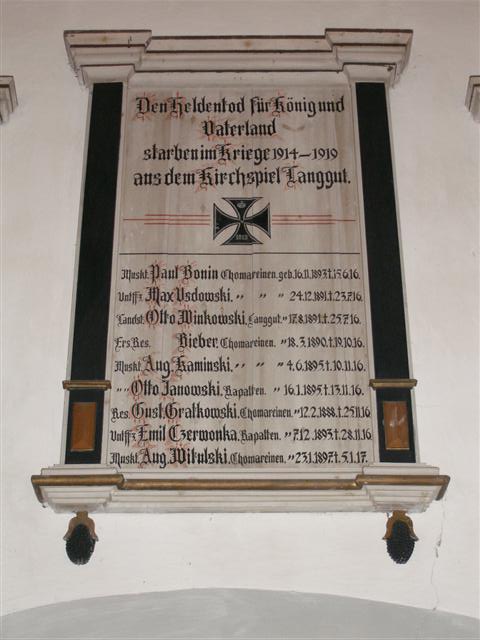 Den Heldentod für König und
Vaterland
starben im Kriege 1914–1919
aus dem Kirchspiel Langgut.
Muskt. Paul Bonin Chomareinen. geb. 16.11.1893 † 1.5.16.
Untffz. Max Usdowski. " " " 24.12.1891 † 23.7.16.
Landst. Otto Winkowski. Langgut. " 17.8.1891 † 25.7.16.
Ers. Res. Bieber. Chomareinen. " 18.3.1890 † 19.10.16.
Muskt. Aug. Kaminski. " " " 4.6.1895 † 10.11.16.
" Otto Janowski. Rapatten. " 16.1.1895 † 13.11.16.
Res. Gust. Gratkowski. Chomareinen. " 12.2.1888 † 25.11.16.
Untffz. Emil Czerwonka. Rapatten. " 7.12.1893 † 28.11.16.
Muskt. Aug. Witulski. Chomareinen. " 23.1.1897 † 5.1.17.